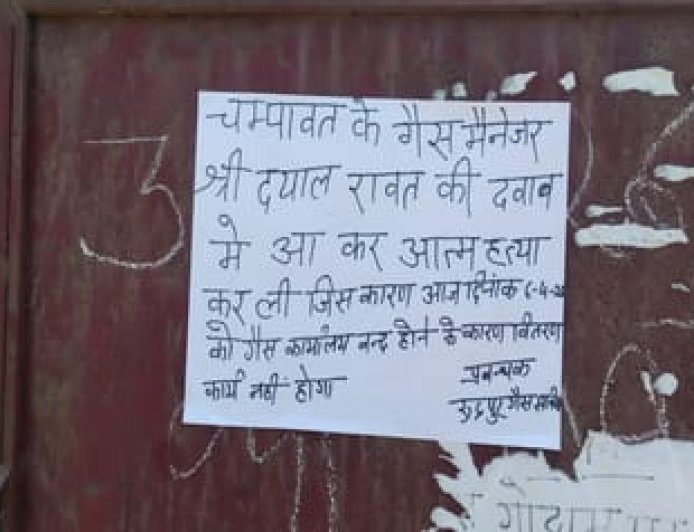 3
चम्पावत के गैस मैनेजर
श्री दयाल रावत की दवाव
मे आ कर आत्म हत्या
कर ली जिस कारण आज दिनांक
को गैस कार्यालय बन्द होने के कारण वितरण
कार्य नहीं होगा
प्रबन्धक
रुद्रपुर गैस